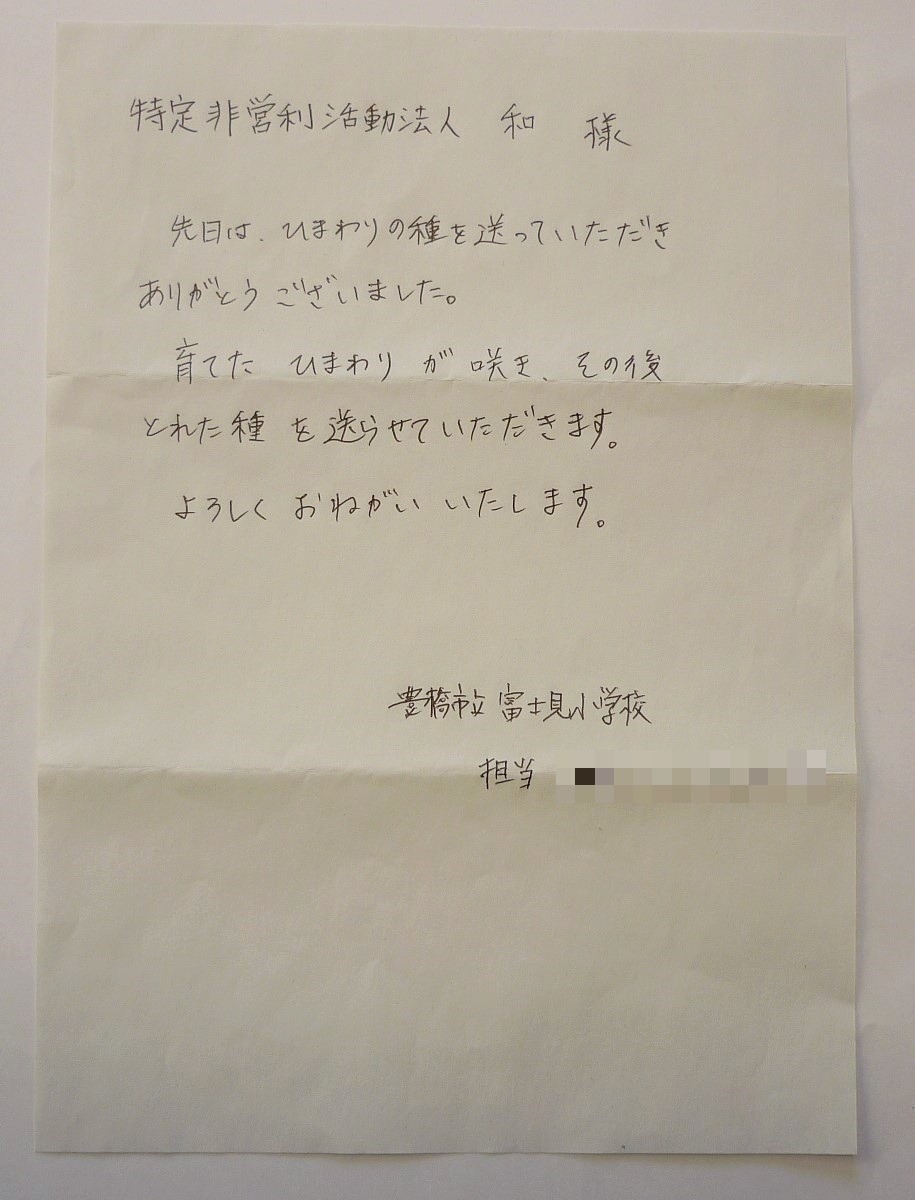 特定非営利活動法人 和 様
先日は、ひまわりの種を送っていただき
ありがとうございました。
育てた ひまわり が 咲き、その後
とれた種 を 送らせていただきます。
よろしく おねがい いたします。
豊橋市立 富士見小学校
担当